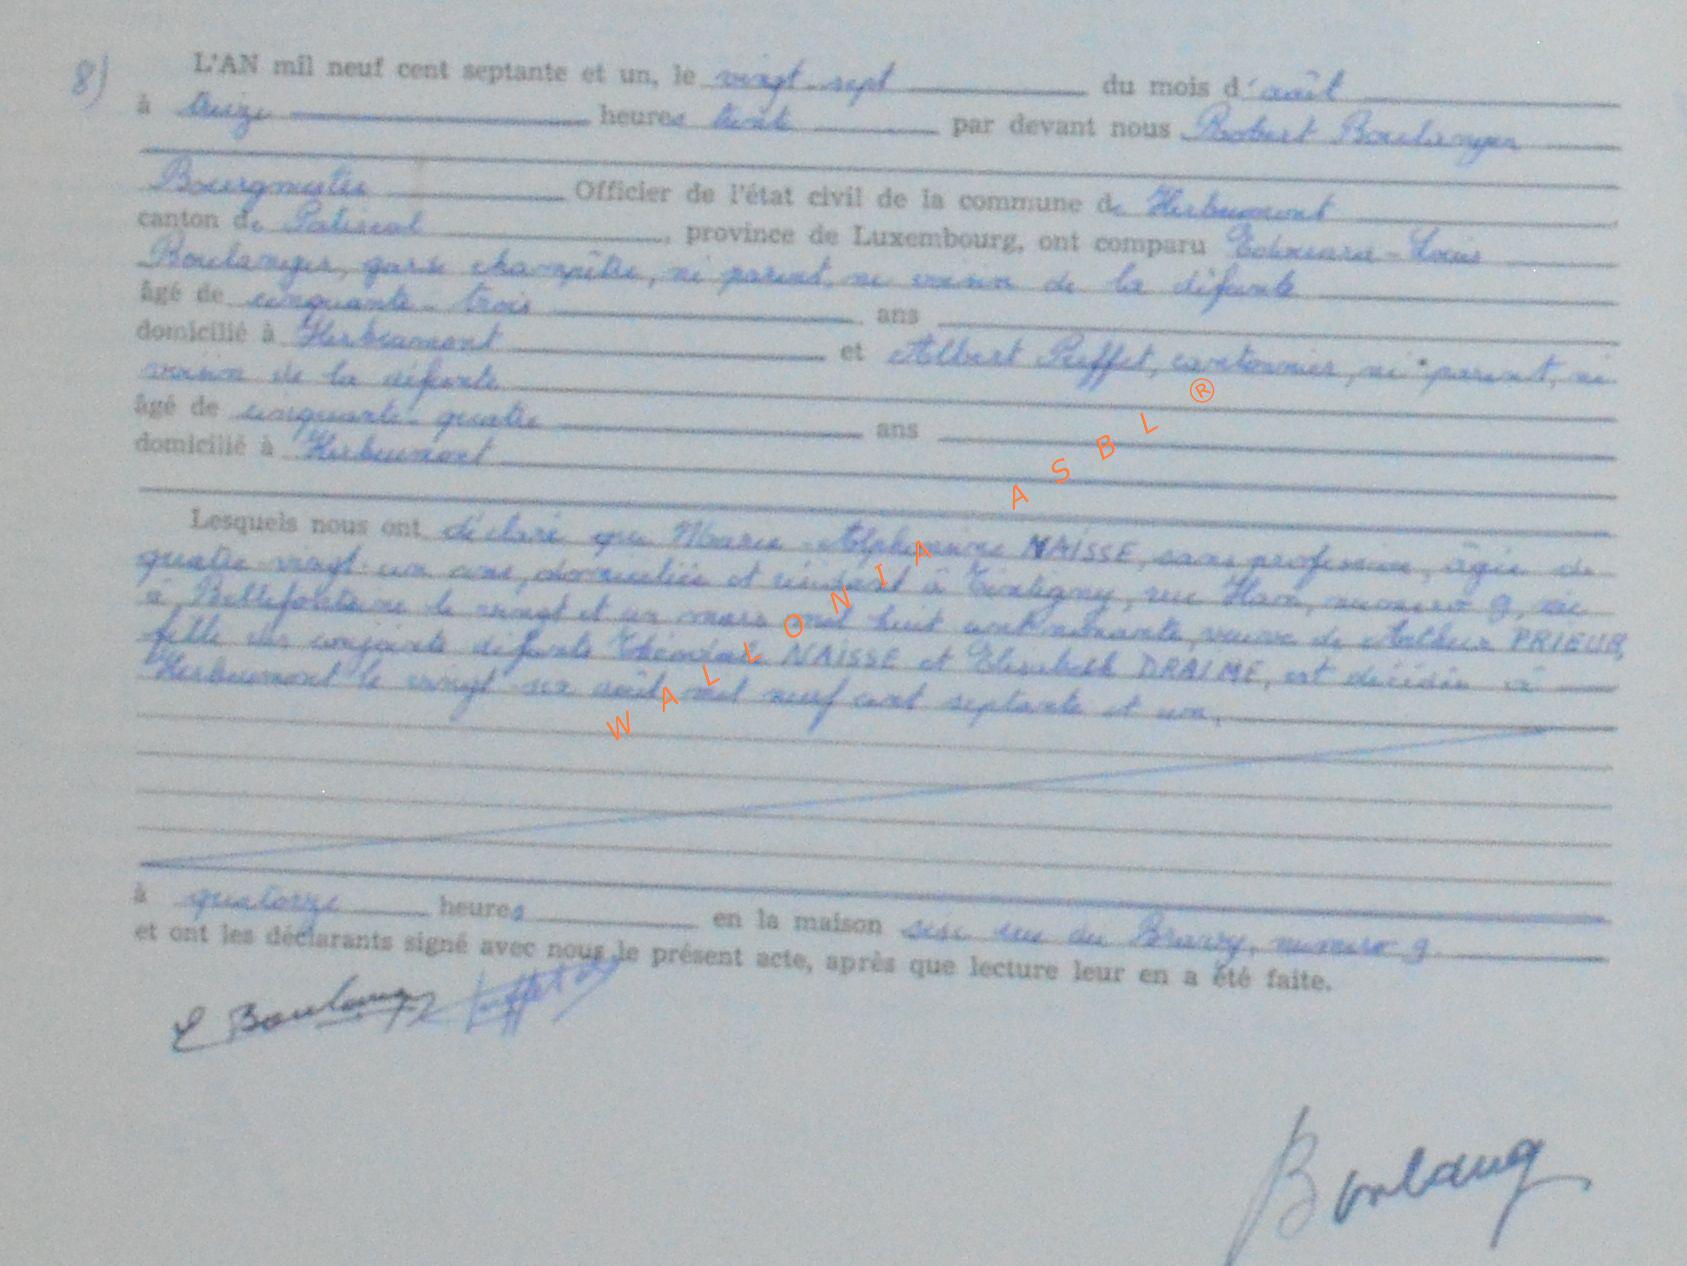 8) L'AN mil neuf cent septante et un, le vingt-sept du mois d'août
à treize heures trente par devant nous Robert Boulanger
Bourgmestre Officier de l'état civil de la commune de Herbeumont
canton de Paliseul, province de Luxembourg, ont comparu Edouard-Louis
Boulanger, garde champêtre, ni parent, ni voisin de la défunte
âgé de cinquante-trois ans
domicilié à Herbeumont et Albert Peiffet, cantonnier, ni parent, ni
voisin de la défunte
âgé de cinquante-quatre ans
domicilié à Herbeumont
Lesquels nous ont déclaré que Marie-Alphonsine NAISSE, sans profession, âgée de
quatre-vingt-un ans, domiciliée et résidant à Tintigny, rue Han, numéro 9, née
à Bellefontaine le vingt et un mars mil huit cent nonante, veuve de Arthur PRIEUR,
fille des conjoints défunts Théodule NAISSE et Elisabeth DRAIME, est décédée à
Herbeumont le vingt-six août mil neuf cent septante et un,
à quatorze heures en la maison sise rue du Bravy, numéro 9
et ont les déclarants signé avec nous le présent acte, après que lecture leur en a été faite.
E Boulanger
Boulang
WALLONIA ASBL ®